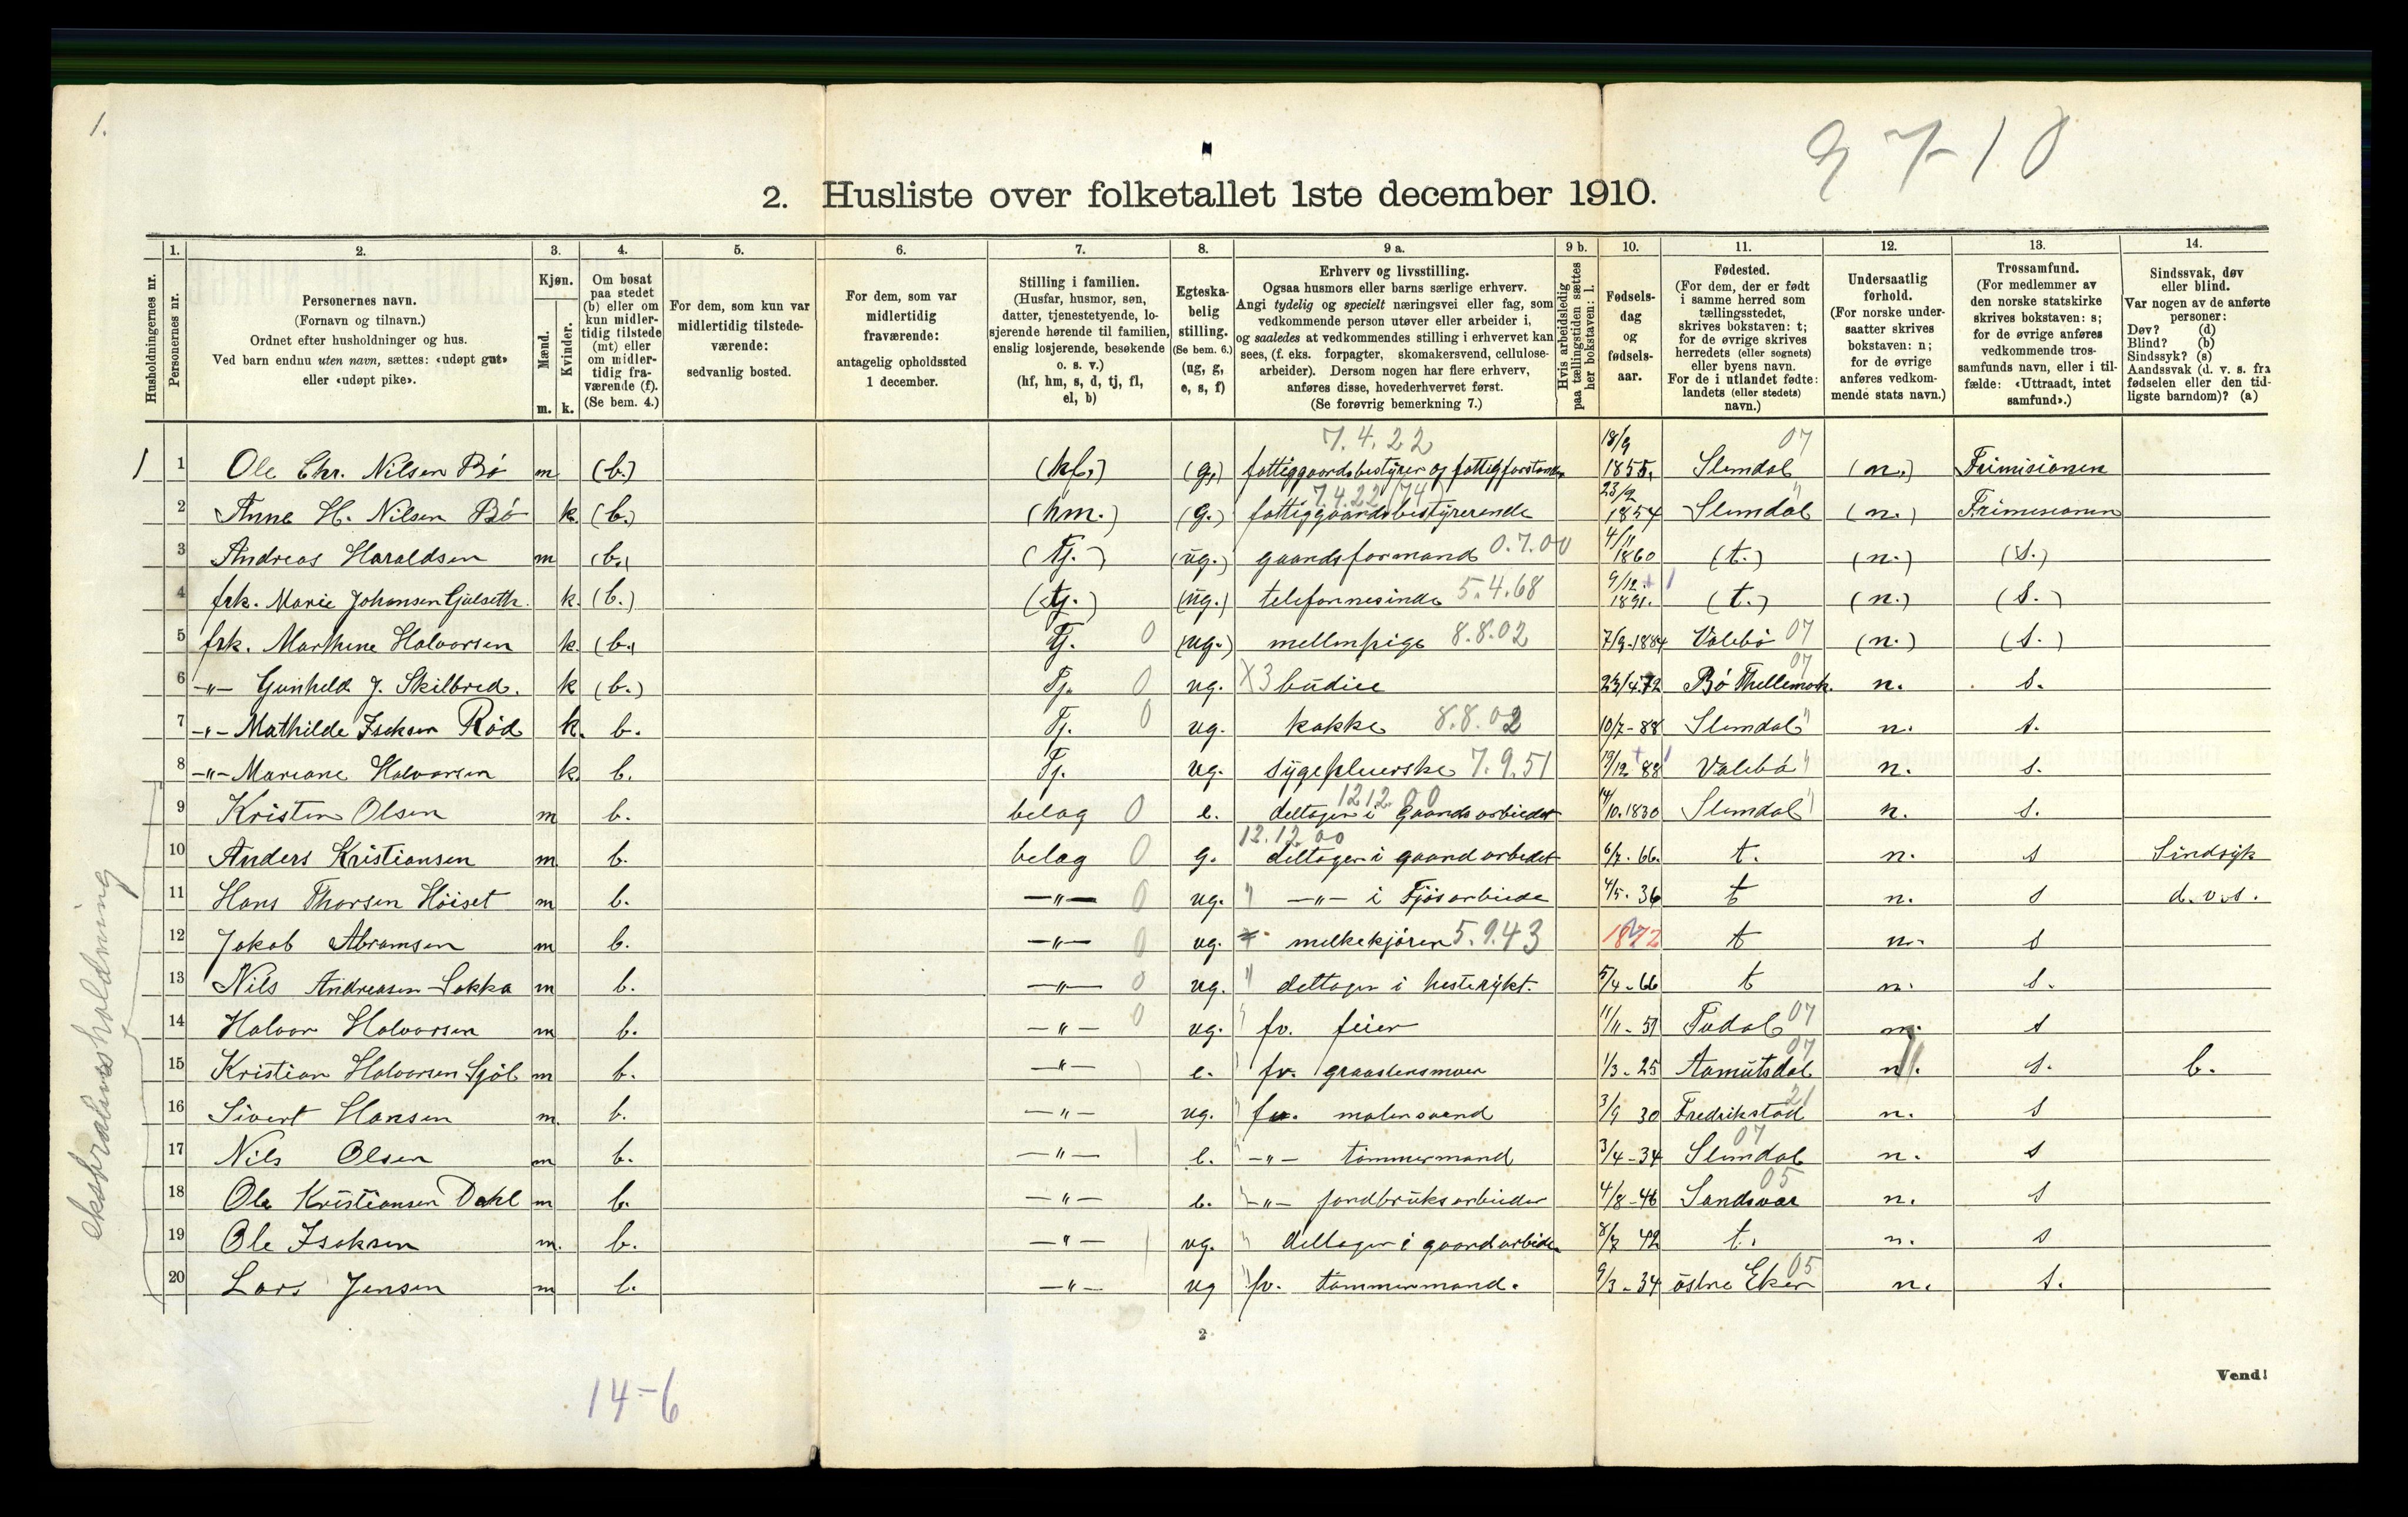 1.
97-10
2. Husliste over folketallet 1ste december 1910.
Husholdningernes nr.
1. Personernes nr.
2. Personernes navn. (Fornavn og tilnavn.) Ordnet efter husholdninger og hus. Ved barn endnu uten navn, sættes: «udøpt gut» eller «udøpt pike».
3. Kjøn. Mænd. m. Kvinder. k.
4. Om bosat paa stedet (b) eller om kun midlertidig tilstede (mt) eller om midlertidig fraværende (f). (Se bem. 4.)
5. For dem, som kun var midlertidig tilstedeværende: sedvanlig bosted.
6. For dem, som var midlertidig fraværende: antagelig opholdssted 1 december.
7. Stilling i familien. (Husfar, husmor, søn, datter, tjenestetyende, losjerende hørende til familien, enslig losjerende, besøkende o. s. v.) (hf, hm, s, d, tj, fl, el, b)
8. Egteskabelig stilling. (Se bem. 6.) (ug, g, e, s, f)
9 a. Erhverv og livsstilling. Ogsaa husmors eller barns særlige erhverv. Angi tydelig og specielt næringsvei eller fag, som vedkommende person utøver eller arbeider i, og saaledes at vedkommendes stilling i erhvervet kan sees, (f. eks. forpagter, skomakersvend, cellulosearbeider). Dersom nogen har flere erhverv, anføres disse, hovederhvervet først. (Se forøvrig bemerkning 7.)
9 b. Hvis arbeidsledig paa tællingstiden sættes her bokstaven: l.
10. Fødselsdag og fødselsaar.
11. Fødested. (For dem, der er født i samme herred som tællingsstedet, skrives bokstaven: t; for de øvrige skrives herredets (eller sognets) eller byens navn. For de i utlandet fødte: landets (eller stedets) navn.)
12. Undersaatlig forhold. (For norske undersaatter skrives bokstaven: n; for de øvrige anføres vedkommende stats navn.)
13. Trossamfund. (For medlemmer av den norske statskirke skrives bokstaven: s; for de øvrige anføres vedkommende trossamfunds navn, eller i tilfælde: «Uttraadt, intet samfund».)
14. Sindssvak, døv eller blind. Var nogen av de anførte personer: Døv? (d) Blind? (b) Sindssyk? (s) Aandssvak (d. v. s. fra fødselen eller den tidligste barndom)? (a)
1 1 Ole Chr. Nilsen Bö m (b.) (hf.) (g.) fattiggaardsbestyrer og fattigforstander 7.4.22 18/9 1855. Slemdal 07 (n.) Frimisionen
2 Anne H. Nilsen Bö k. (b.) (hm.) (g.) fattiggaardsbestyrerende 7.4.22 (74) 23/2 1854 Slemdal " (n.) Frimisionen
3 Andreas Haraldsen m (b.) (Tj.) (ug.) gaardsformand 0.7.00 4/11 1860 (t.) (n.) (s.)
4 frk. Marie Johansen Gjelseth. k. (b.) (tj.) (ug.) telefonnesinde 5.4.68 9/12. 1891. (t.) (n.) (s.)
5 frk. Marthine Halvorsen k. (b.) Tj. 0 (ug.) mellempige 8.8.02 7/9-1884 Valebö 07 (n.) (s.)
6 -"- Gunhild J. Skilbred. k (b.) Tj. 0 ug. X3 budeie 23/4.72 Bö Thellemark. 07 n. s.
7 -"- Mathilde Isaksen Röd k. b. Tj. 0 ug. kokke 8.8.02 10/7-88 Slemdal " n. s.
8 -"- Mariane Halvorsen k. b. Tj. ug. sygepleierske 7.9.51 19/12 88 Valebö " n. s.
9 Kristen Olsen m b. belag 0 e. deltager i gaardsarbeidet 12.12.00 14/10.1830 Slemdal " n. s.
10 Anders Kristiansen m b. belag 0 g. deltager i gaardarbedet 12.12.00 6/7. 66. t. n. s Sindsyk
11 Hans Thorsen Höiset m b. -"- 0 ug. " -"- i Fjösarbeide 4/5. 36 t n. s d.v.s.
12 Jakob Abramsen m b. -"- 0 ug. melkekjörer 5.9.43 1872 t n. s
13 Nils Andreasen Løkka m b. -"- 0 ug. " deltager i hesterykt. 5/4-66 t n. s.
14 Halvor Halvorsen m b. -"- 0 ug. " fv. feier 11/11-51 Tudal 07 n. s
15 Kristian Halvorsen Sjöl m b. -"- e. " fv. graastensmurer 1/3-25 Aamutsdal 07 n. s. b.
16 Sivert Hansen m. b. -"- ug. " fv. malersvend 3/9 30 Fredrikstad 21 n. s
17 Nils Olsen m b. -"- e. " -"- tömmermand 3/4-34 Slemdal 07 n. s
18 Ole Kristiansen Dahl m b. -"- e. " -"- jordbruksarbeider 4/8-46 Sandsvær 05 n. s
19 Ole Isaksen m. b. -"- ug. " deltager i gaardarbeide. 8/7 42 t. n. s
20 Lars Jensen m b. -"- ug " fv. tömmermand. 9/3-34 östre Eker 05 n. s.
ekstrahusholdning
2
14-6
Vend!